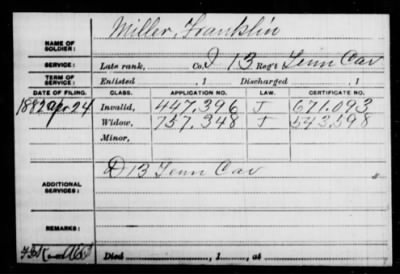 Miller, Franklin
NAME OF SOLDIER:
SERVICE: Late rank, Co. I 13 Reg't Tenn Cav
TERM OF SERVICE: Enlisted , 1 Discharged , 1
DATE OF FILING. CLASS. APPLICATION NO. LAW. CERTIFICATE NO.
1882 Apr 24 Invalid, 447.396 J 671.093
Widow, 757.348 J 543.598
Minor,
D 13 Tenn Cav
ADDITIONAL SERVICES:
REMARKS:
Died , 1 , at